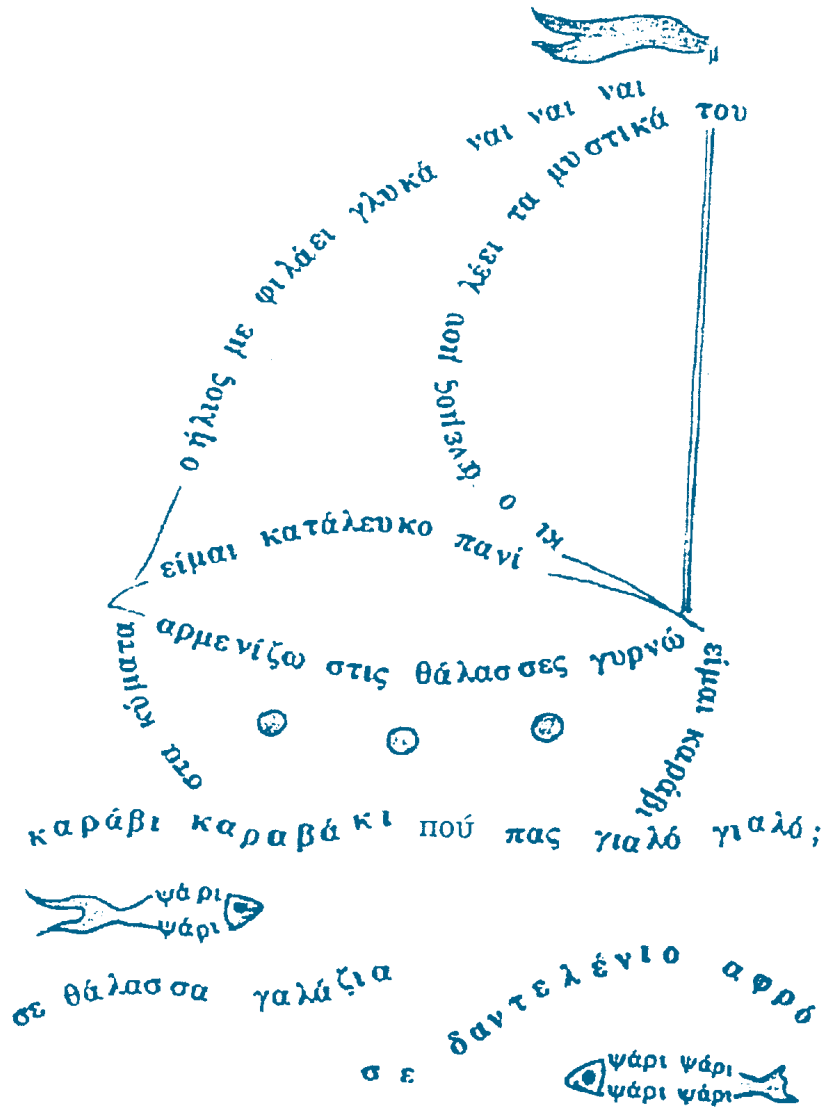 μ
ο ήλιος με φιλάει γλυκά ναι ναι ναι
κι ο άνεμος μου λέει τα μυστικά του
είμαι κατάλευκο πανί
αρμενίζω στις θάλασσες γυρνώ
είμαι καράβι
στα κύματα
καράβι καραβάκι πού πας γιαλό γιαλό;
ψάρι
ψάρι
σε θάλασσα γαλάζια
σε δαντελένιο αφρό
ψάρι ψάρι
ψάρι ψάρι